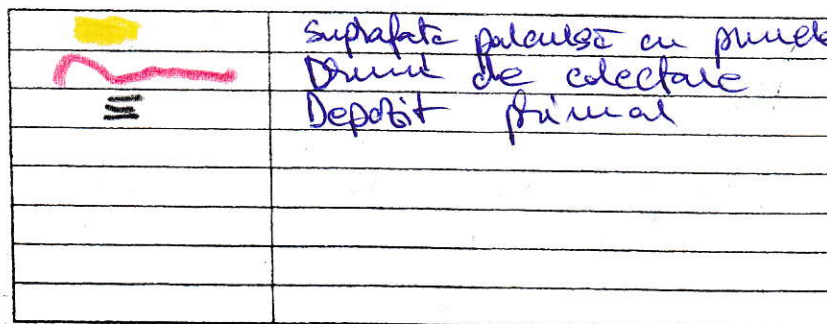 suprafata parcursă cu
Drum de colectare
Depozit primar